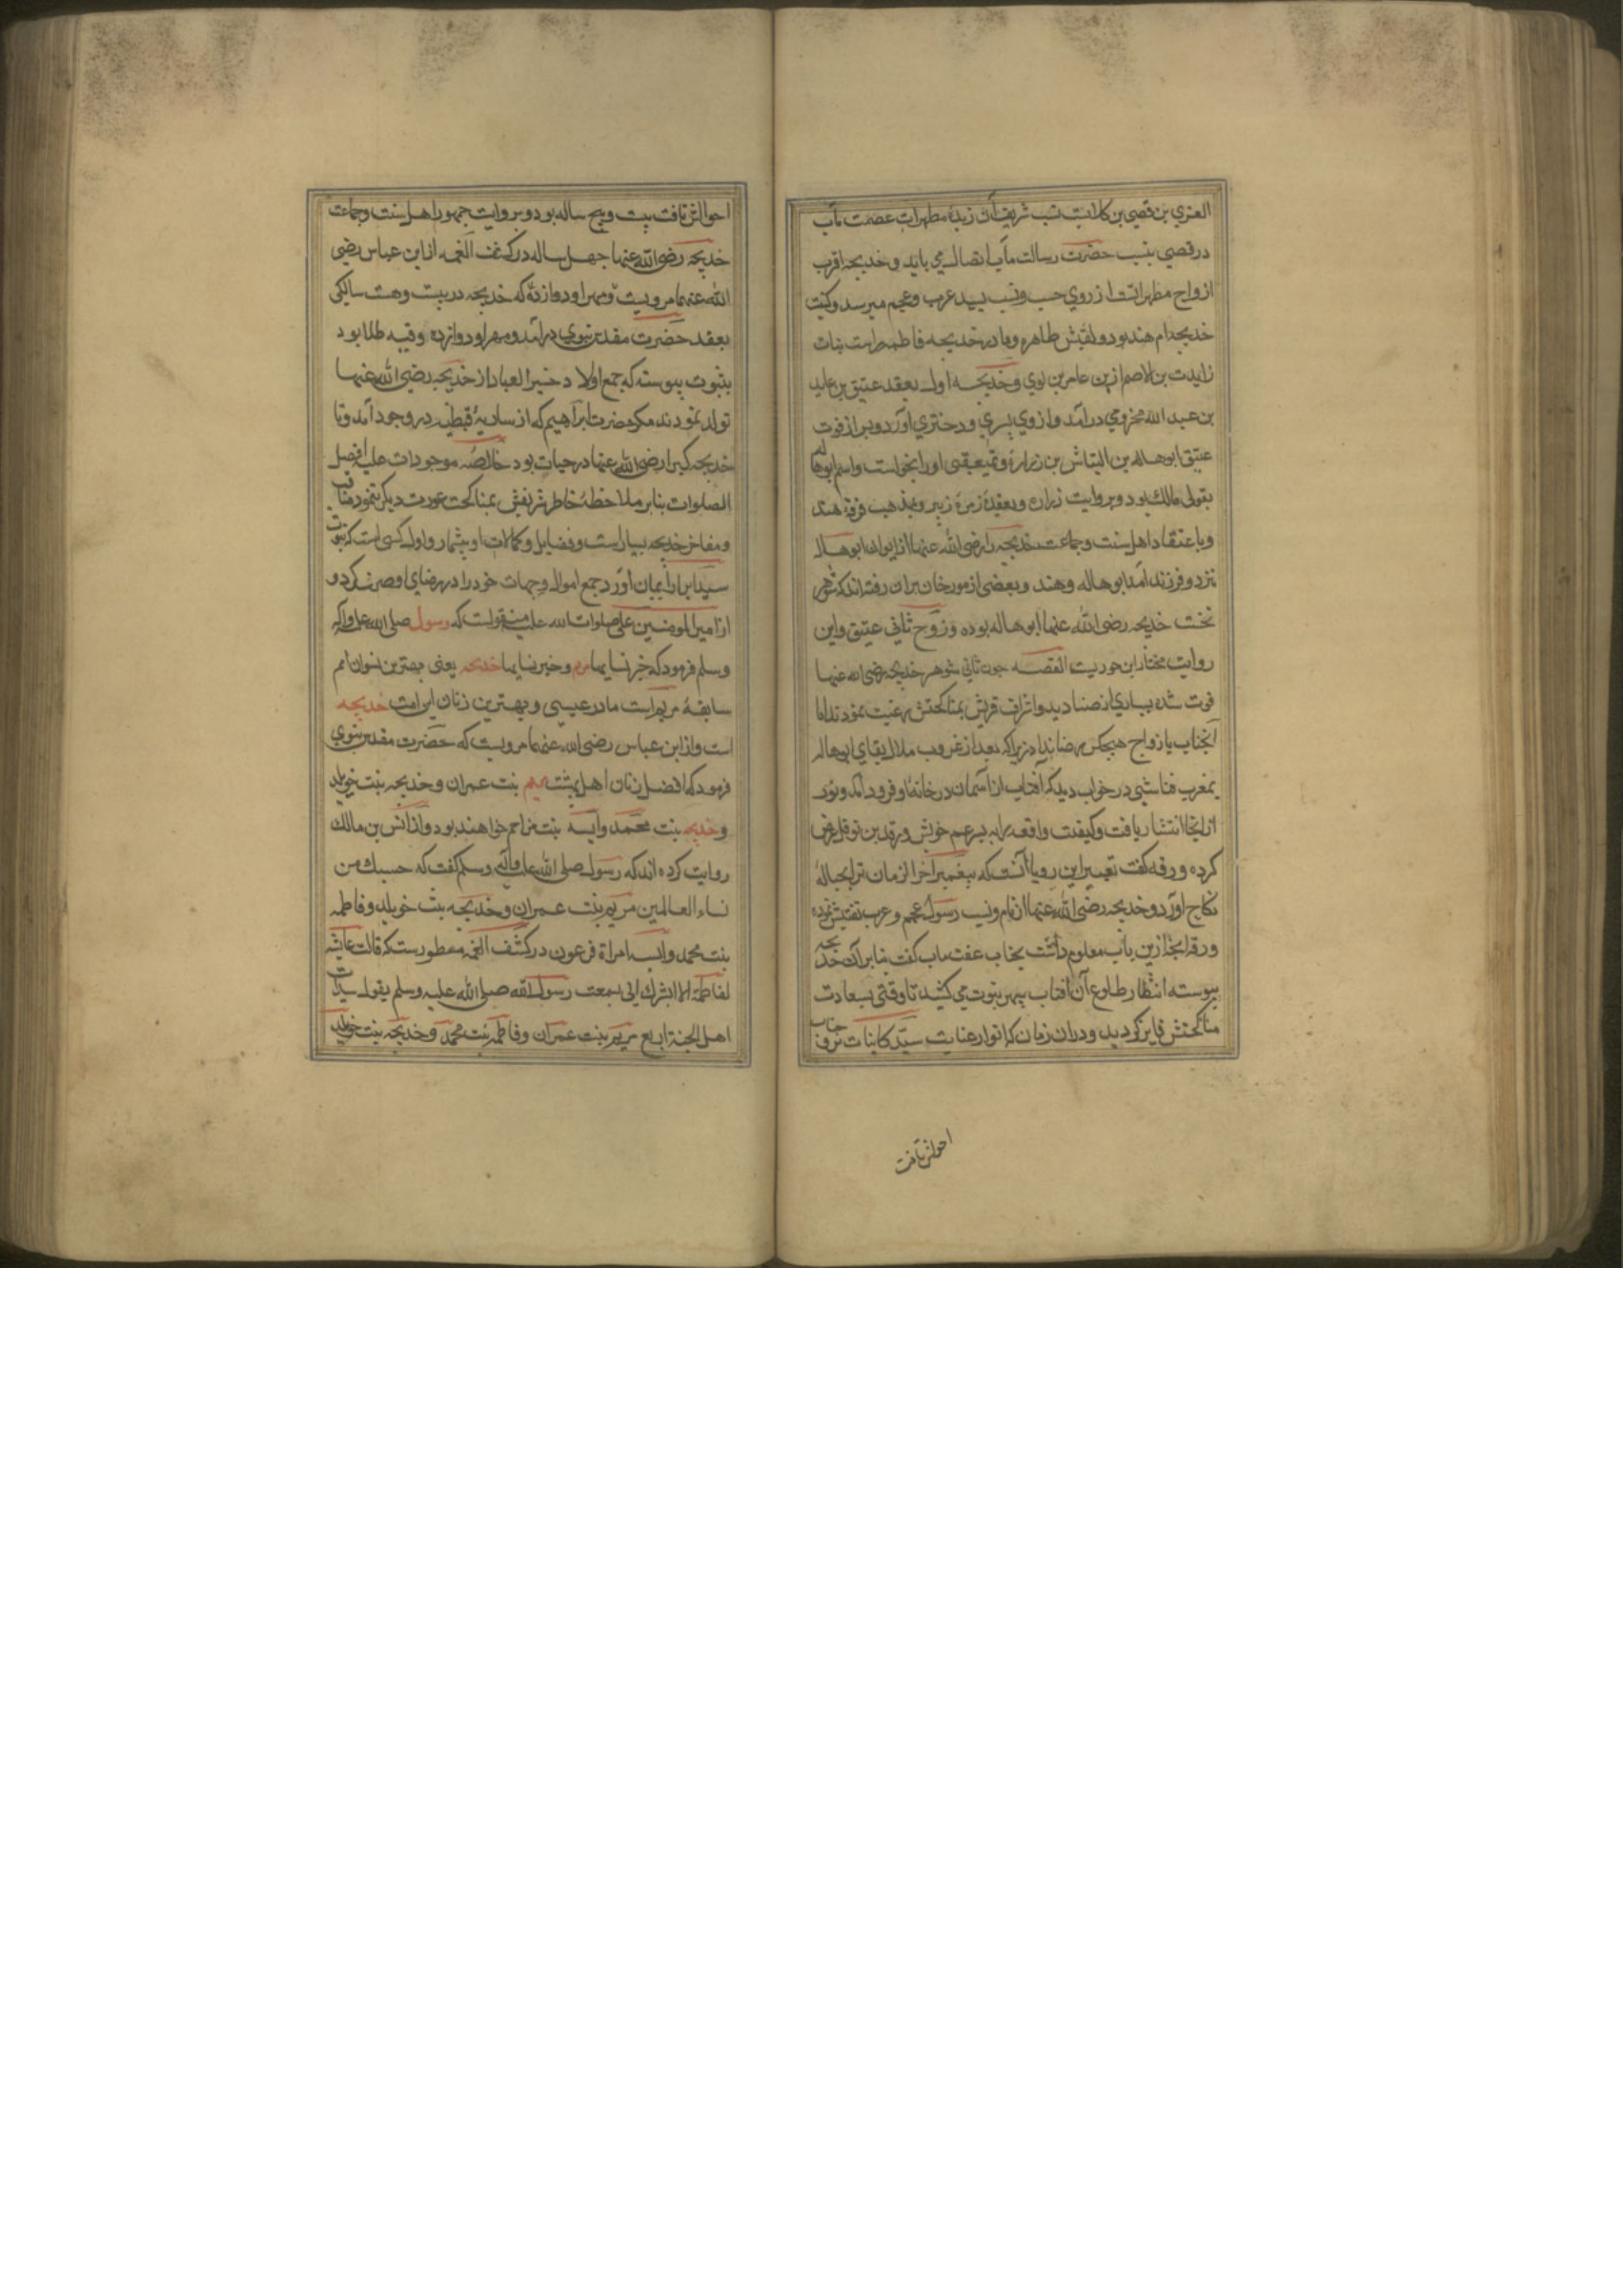 العزي بن قصي بن كلابست نسب شريف آن زبدهٔ مطهرات عصمت مآب
در قصي بنسب حضرت رسالت مآب اتصال مي يابد و خديجه اقرب
ازواج مطهراتست از روي حسب و نسب بسيد عرب و عجم ميرسد و كنيت
خديجه ام هند بود و لقبش طاهره و مادر خديجه فاطمه است بنت
زايدت بن الاصم از بن عامر بن لوي و خديجه اول بعقد عتيق بن عايد
بن عبد الله مخزومي درآمد و از وي پسري و دختري آورد و بعد از فوت
عتيق ابو هاله بن التباش بن زراره او را بخواست و اسم ابو هاله
بقولي مالك بود و بروايت زراره و بعقيدهٔ زمرهٔ زبير و بمذهب فرقهٔ هند
و باعتقاد اهل سنت و جماعت خديجه را رضى الله عنها از ابو هاله
دو فرزند آمد هاله و هند و بعضى از مورخان بران رفته اند كه شوهر
نخست خديجه رضى الله عنها ابو هاله بوده و زوج ثاني عتيق و اين
روايت مختار ابن حوريست القصه چون ثاني شوهر خديجه رضى الله عنها
فوت شده بسياري از صناديد و اشراف قريش بمناكحتش رغبت نمودند اما
آنجناب بازدواج هيچكس رضا نداد زيرا كه بعد از غروب ملال بقاي ابو هاله
بمغرب فنا شبي در خواب ديد كه آفتاب از آسمان در خانهٔ او فرود آمد و نور
از انجا انتشار يافت و كيفيت واقعه را به پسر عم خويش ورقه بن نوفل عرض
كرده ورقه كفت تعبير اين رويا آنست كه پيغمبر آخر الزمان ترا بحبالهٔ
نكاح آورد و خديجه رضى الله عنها از نام و نسب رسول عجم و عرب تفتيش نموده
ورقه انچه ازين باب معلوم داشت بجناب عفت مآب كفت بنابر آن خديجه
پيوسته انتظار طلوع آن آفتاب سپهر نبوت مي كشيد تا وقتي بسعادت
مناكحتش فايز كرديد و دران زمان كه انوار عنايت سيد كاينات بر وجنات
احوالش تافت
احوالش تافت بيست و پنج ساله بود و بروايت جمهور اهل سنت و جماعت
خديجه رضى الله عنها چهل ساله در كشف الغمه از ابن عباس رضى
الله عنهما مرويست كه خديجه در بيست و هشت سالكى
بعقد حضرت مقدس نبوي درآمد و مهر او دوازده وقيه طلا بود
بثبوت پيوسته كه جمع اولاد خير العباد از خديجه رضى الله عنها
تولد نمودند مكر حضرت ابراهيم كه از ماريهٔ قبطيه در وجود آمد و تا
خديجه كبرا رضى الله عنها در حيات بود خلاصهٔ موجودات عليه افضل
الصلوات بنابر ملاحظهٔ خاطر شريفش بمناكحت عورت ديكر ننمود مناقب
و مفاخر خديجه بسيارست و فضايل و كمالات او بيشمار و اول كسى است كه بنبوت
سيد ابرار ايمان آورد جمع اموال و جهات خود را در رضاي او صرف كرد و
از امير المومنين على صلوات الله عليه منقولست كه رسول صلى الله عليه و اله
وسلم فرمود كه خير نسايها مريم و خير نسايها خديجه يعنى بهترين نسوان امم
سابقهٔ مريم است مادر عيسى و بهترين زنان اين امت خديجه
است و از ابن عباس رضى الله عنهما مرويست كه حضرت مقدس نبوي
فرمود كه افضل زنان اهل بهشت مريم بنت عمران و خديجه بنت خويلد
و خديجه بنت محمد و آسيه بنت مزاحم خواهند بود و از انس بن مالك
روايت كرده اند كه رسول صلى الله عليه و آله و سلم كفت كه حسبك من
نساء العالمين مريم بنت عمران و خديجه بنت خويلد و فاطمه
بنت محمد و آسيه امراة فرعون در كشف الغمه مسطورست كه قالت عايشه
لفاطمة الا ابشرك اني سمعت رسول الله صلى الله عليه وسلم يقول سيدات
اهل الجنة اربع مريم بنت عمران و فاطمه بنت محمد و خديجه بنت خويلد